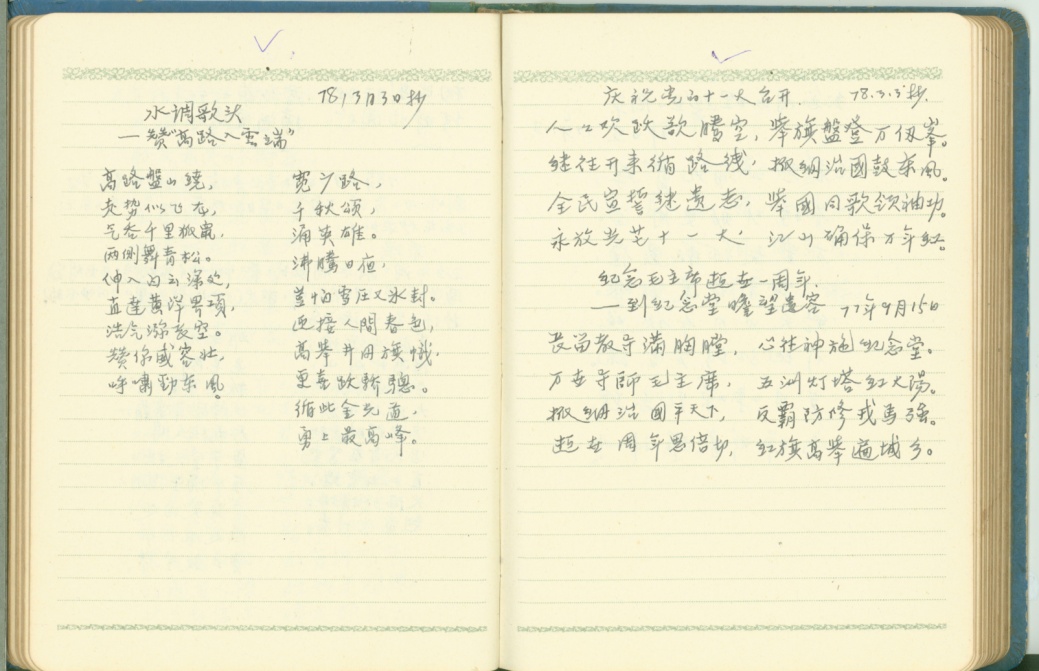 78,3月3日抄
水调歌头
一赞"高路入雲端"
高路盤山繞,
走势似飞龙,
气吞千里
两侧舞青松。
伸入白云深处,
直達黄洋界項,
浩气漾長空。
赞你威容壮,
呼嘯勁东風。
寬少路,
千秋颂,
涌英雄。
沸騰日夜,
豈怕雪压又冰封。
迎接人間春色,
高举井冈旗幟,
更喜跃骄驄。
循此金光道,
勇上最高峰。
庆祝党的十一大召开. 78.3.3抄.
人人欢跃歌騰空, 举旗盤登万仞峯。
继往开来循路线, 纲治國鼓东風。
全民宣誓继遗志, 举國同歌领袖功。
永放光芒十一大, 江山确保万年红。
纪念毛主席逝世一周年.
一到纪念堂瞻望遗容 77年9月15日
長留教导满胸膛, 心往神施纪念堂。
万世导師毛主席, 五洲灯塔红太陽。
纲治國平天下, 反霸防修戎馬强。
逝世周年思倍切, 红旗高举遍城乡。